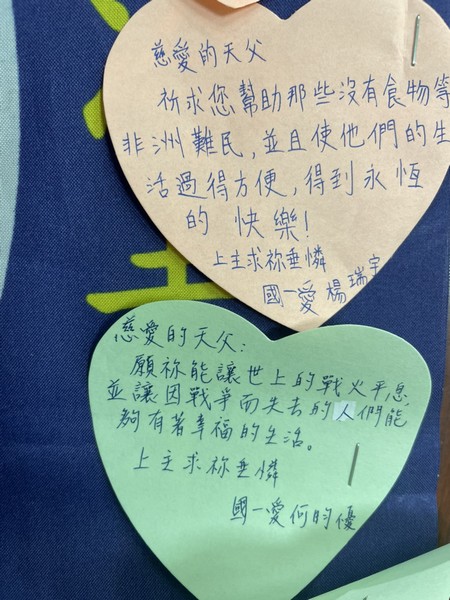 慈愛的天父
祈求您幫助那些沒有食物等
非洲難民,並且使他們的生
活過得方便,得到永恆
的快樂!
上主求祢垂憐
國一愛 楊瑞宇
慈愛的天父:
願祢能讓世上的戰火平息
並讓因戰爭而失去的人們能
夠有著幸福的生活。
上主求祢垂憐
國一愛何昀優